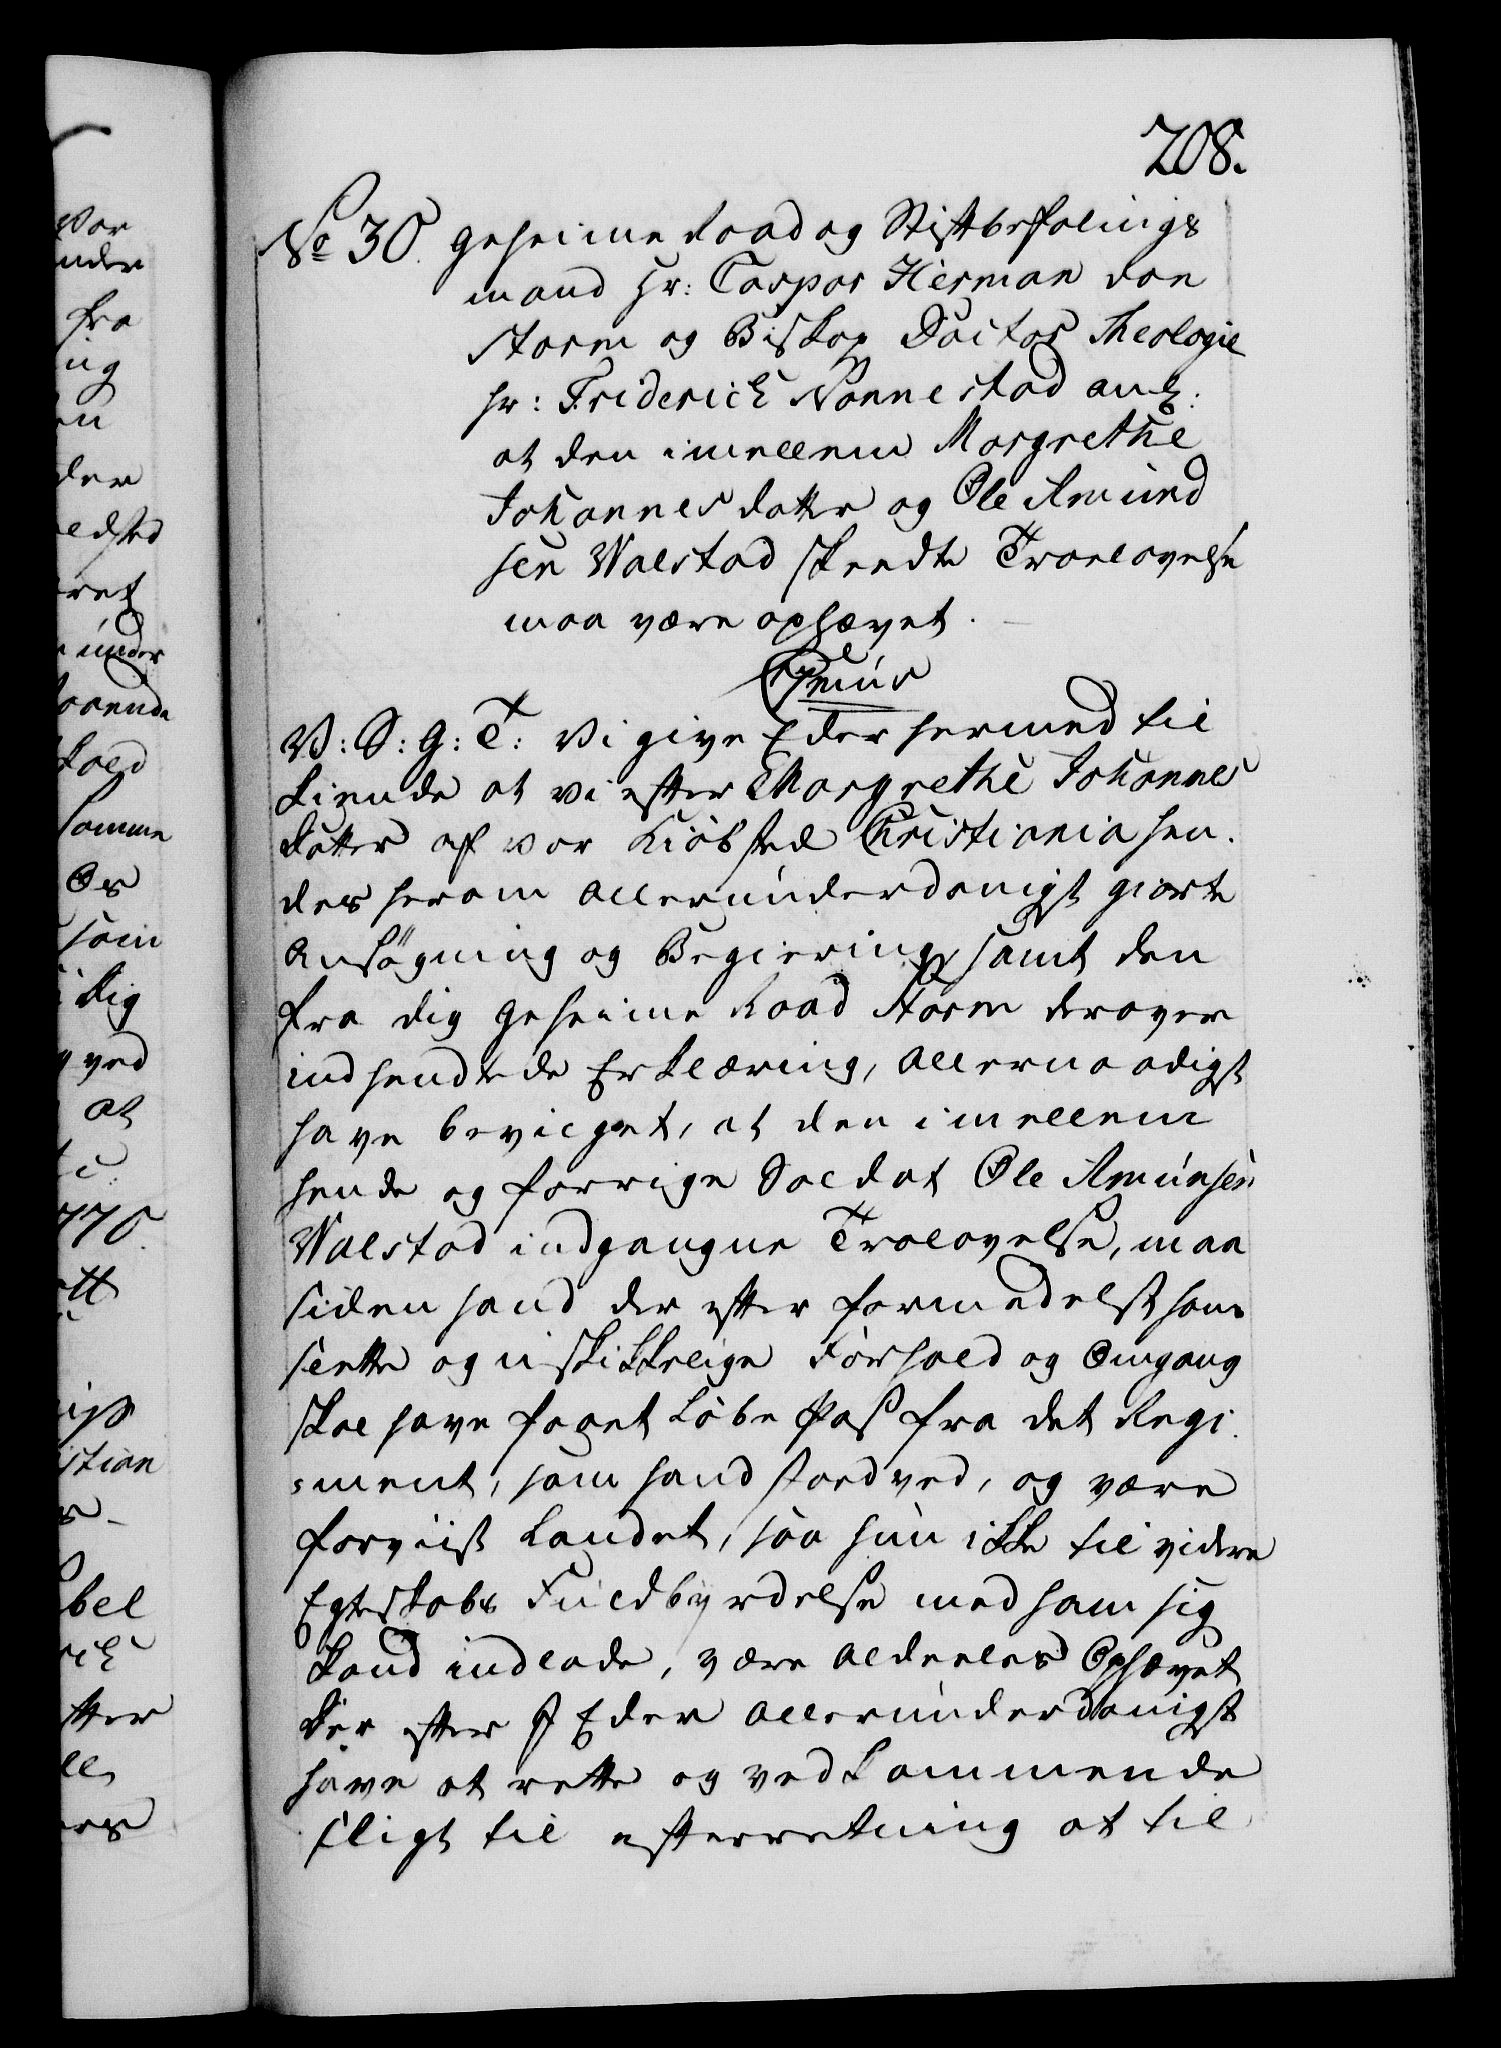 208.
No 30. Geheime Raad og Stiftbefalings
mand Hr: Caspar Herman von
Storm og Biskop Doctor Theologiæ
hr: Friderich Nannestad anl:
at den imellem Margrethe
Johannesdatter og Ole Amund
sen Walstad skeedte Troelovelse
maa være ophævet.
C7mus
V: S: G: T: Vi give Eder hermed til
kiende at vi efter Margrethe Johannes
datter af vor Kiöbsted Christiania hen.
des herom allerunderdanigst giorte
Ansögning og Begiering, samt den
fra dig Geheime Raad Storm derover
indhendtede Erklæring, allernaadigst
have bevilget, at den imellem
hende og forrige Soldat Ole Amunsen
Walstad indgangne Trolovelse, maa
siden hand der efter formedelst hans
slette og uskikkelige Forhold og Omgang
skal have faaet Löbe Pas fra det Regi
=ment, som hand stoed ved, og være
forviist Landet, saa hun ikke til videre
Egteskabs Fuldbyrdelse med ham sig
kand indlade, være aldeeles Ophævet
Der efter I Eder allerunderdanigst
have at rette og vedkommende
sligt til efterretning at til